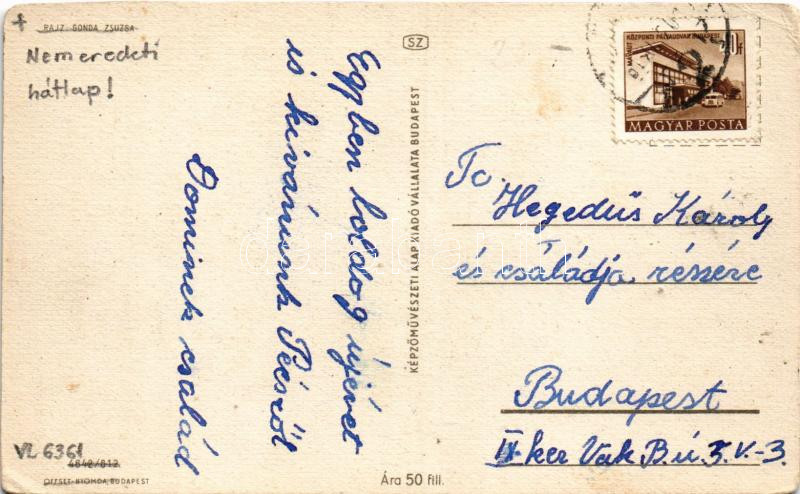 RAJZ: GONDA ZSUZSA
Nem eredeti
hátlap!
Egyben boldog újévet
is kívánunk Pécsről
Dominek család
VL6361
4642/612
OFFSET-NYOMDA, BUDAPEST
SZ
KÉPZŐMŰVÉSZETI ALAP KIADÓVÁLLALATA BUDAPEST
MÁVAUT KÖZPONTI PÁLYAUDVAR BUDAPEST
MAGYAR POSTA
To
Hegedűs Károly
és családja részére
Budapest
IX ker Vak B. u. 5. V.-3.
Ára 50 fill.